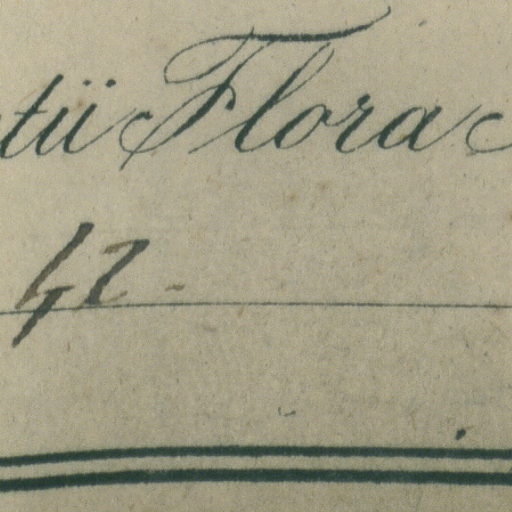 tii Flora
42.